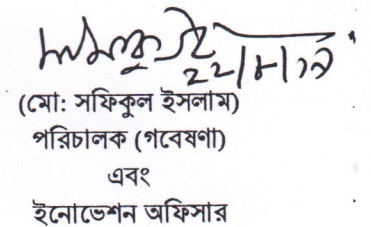 ২২/৮/১৯
(মো: সফিকুল ইসলাম)
পরিচালক (গবেষণা)
এবং
ইনোভেশন অফিসার